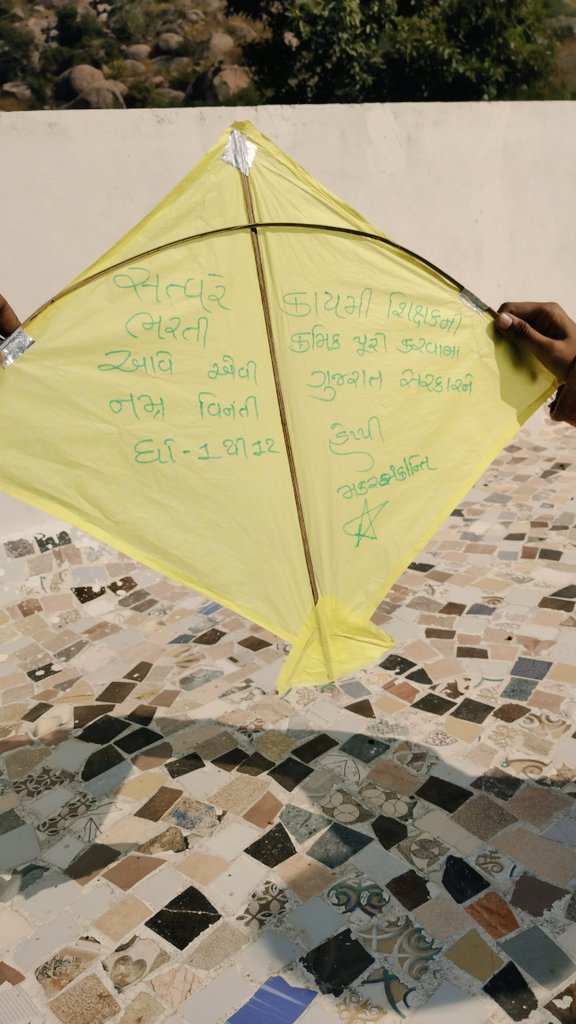 સત્વરે
ભરતી
આવે એવી
નમ્ર વિનંતી
ધો - 1 થી 12
કાયમી શિક્ષકમી
ક્રમિક પૂરી કરવામાં
ગુજરાત સરકારને
હેપ્પી
મકરસંક્રાંન્તિ